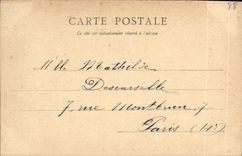 CARTE POSTALE
Ce côté est exclusivement réservé à l'adresse
Mlle Mathilde
Descourselle
7 rue Montbrun 7
Paris (14e)